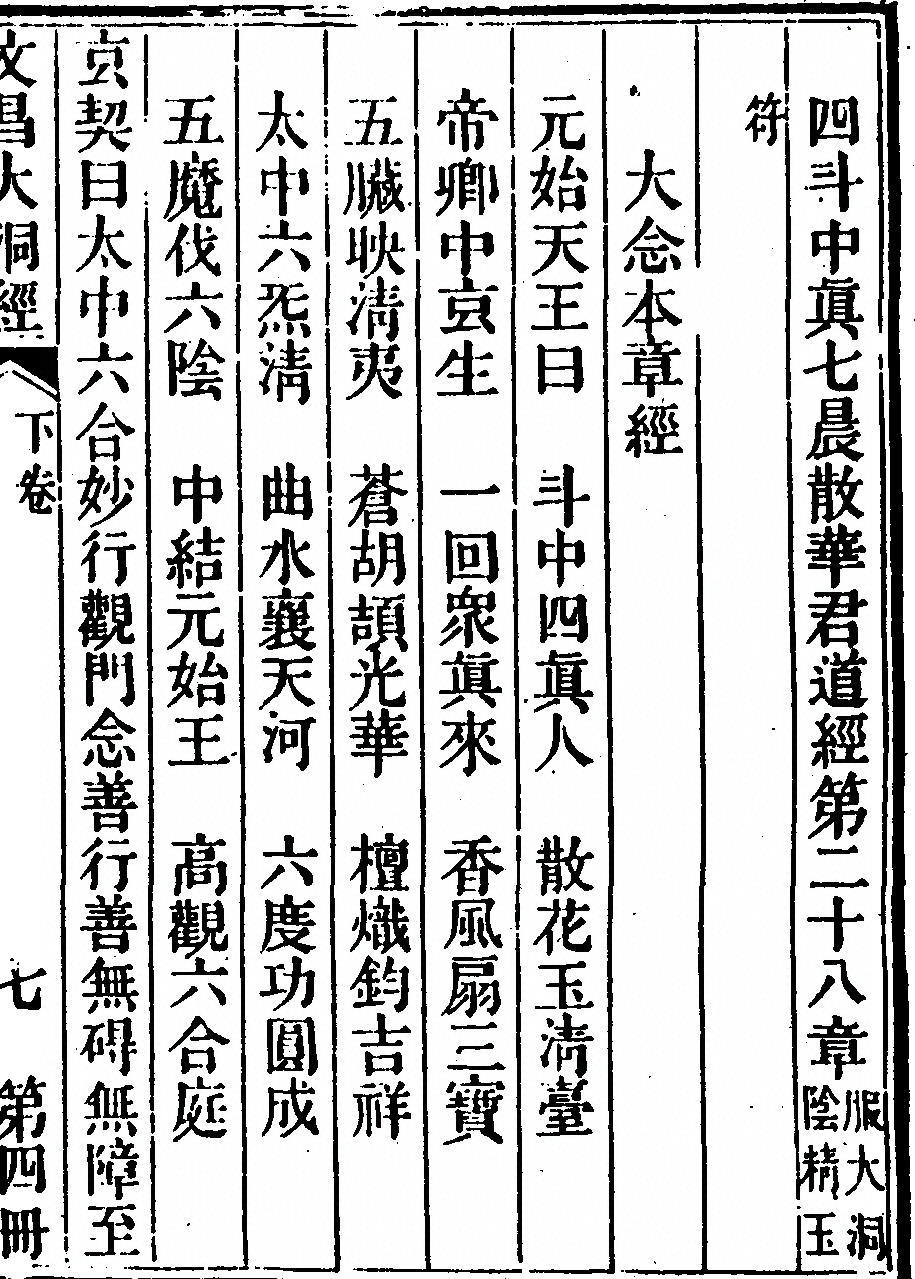 四斗中眞七晨散華君道經第二十八章服大洞陰精玉
符
大念本章經
元始天王曰　斗中四眞人　散花玉淸臺
帝卿中㐮生　一回衆眞來　香風扇三寶
五臟映淸夷　蒼胡頡光華　檀熾鈞吉祥
太中六炁淸　曲水襄天河　六度功圓成
五魔伐六陰　中結元始王　高觀六合庭
契曰太中六合妙行觀門念善行善無碍無障至
文昌大洞經　下卷　七　第四冊